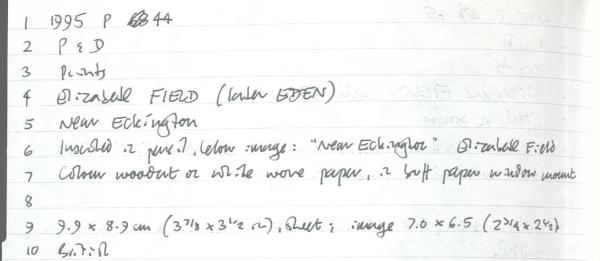 1 1995 P 44
2 P & D
3 Prints
4 Elizabeth FIELD (later EDEN)
5 Near Eckington
6 Inscribed in pencil, below image: "Near Eckington" Elizabeth Field
7 Colour woodcut on white wove paper, in buff paper window mount
8
9 9.9 x 8.9 cm (3 7/8 x 3 1/2 in), sheet; image 7.0 x 6.5 (2 3/4 x 2 1/2)
10 British